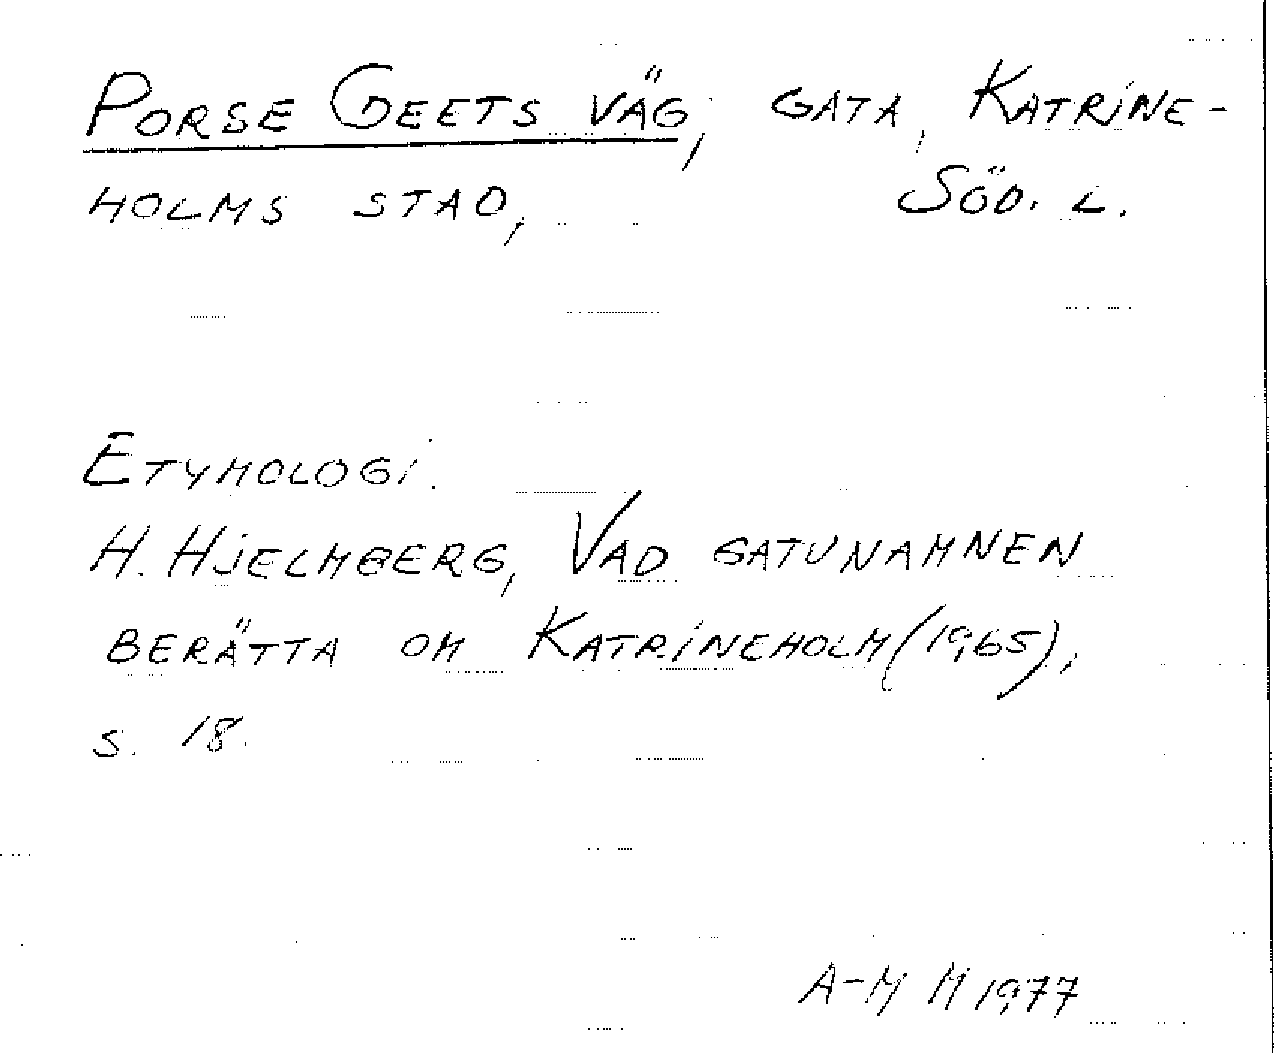 PORSE GEETS VÄG, GATA, KATRINE-
HOLMS STAD, SÖD. L.
ETYMOLOGI.
H. HJELMBERG, VAD GATUNAMNEN
BERÄTTA OM KATRINEHOLM (1965),
S. 18.
A-M M 1977